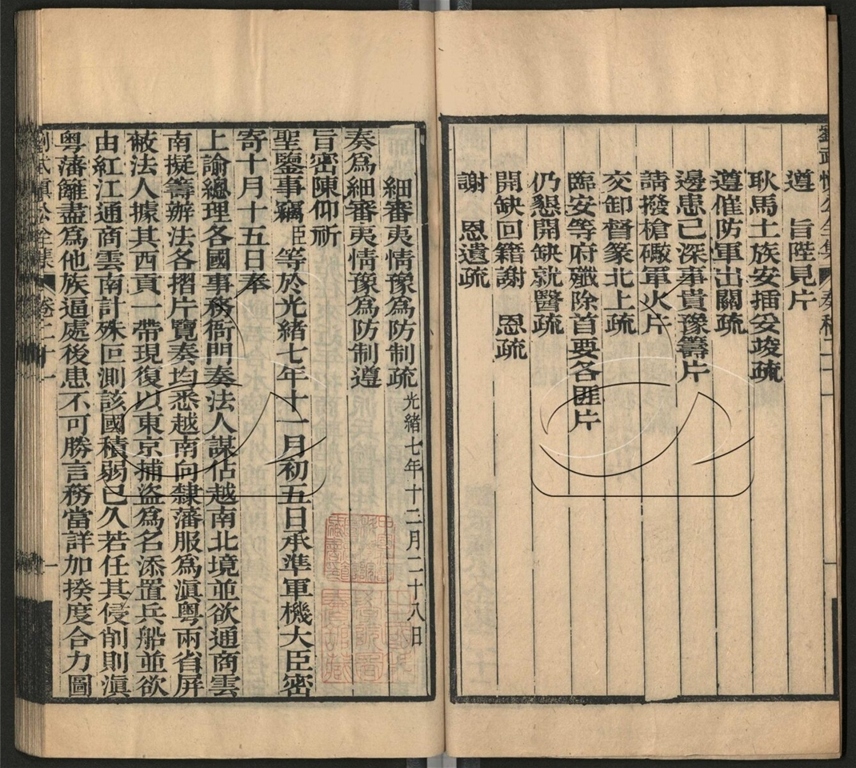 遵　旨陛見片
耿馬土族安插妥竣疏
遵催防軍出關疏
邊患已深事貴豫籌片
請撥槍礮軍火片
交卸督篆北上疏
臨安等府殲除首要各匪片
仍懇開缺就醫疏
開缺回籍謝　恩疏
謝　恩遺疏
細審夷情豫爲防制疏 光緒七年十二月二十八日
奏爲細審夷情豫爲防制遵
旨密陳仰祈
聖鑒事竊臣等於光緒七年十一月初五日承準軍機大臣密
寄十月十五日奉
上諭總理各國事務衙門奏法人謀佔越南北境並欲通商雲
南擬籌辦法各摺片覽奏均悉越南向隸藩服爲滇粵兩省屏
蔽法人據其西貢一帶現復以東京捕盜爲名添置兵船並欲
由紅江通商雲南計殊叵測該國積弱已久若任其侵削則滇
粵藩籬盡爲他族逼處後患不可勝言務當詳加揆度合力圖
劉武慎公全集 卷二十一 一